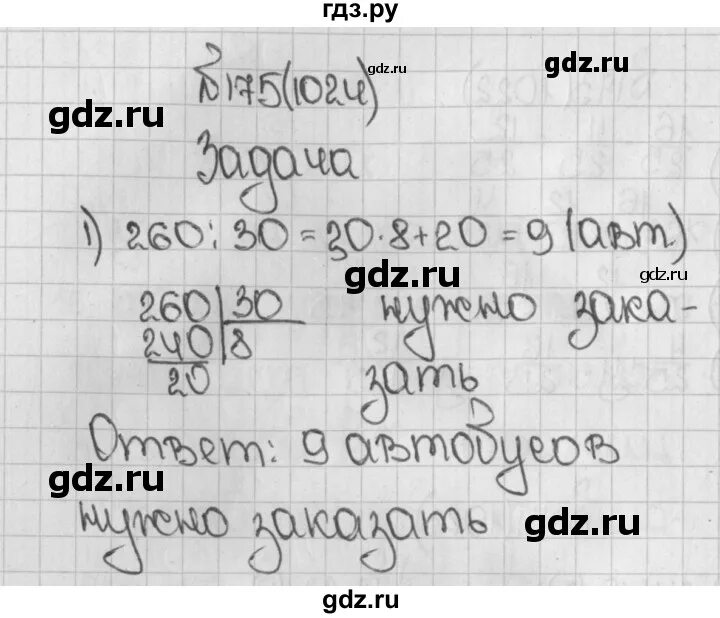 гдз.ру
gdz.ru
gdz.ru
№175(1024)
gdz.ru
Задача
1) 260 : 30 = 30·8+20 = 9 (авт.)
gdz.ru
gdz.ru
260 30 нужно зака-
240 8
20 зать
Ответ: 9 автобусов
gdz.ru
нужно заказать
gdz.ru
gdz.ru